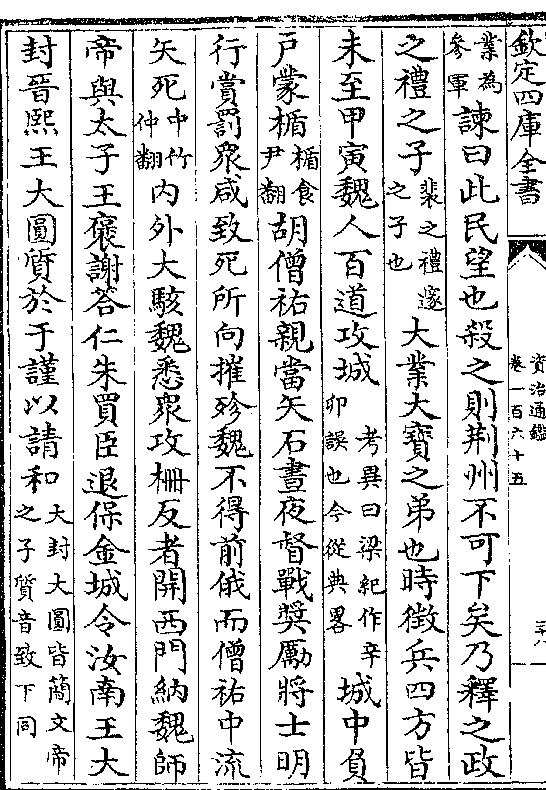 欽定四庫全書
資治通鑑
卷一百六十五
三十八
業為參軍諫曰此民望也殺之則荆州不可下矣乃釋之政
之禮之子裴之禮邃之子也大業大寶之弟也時徵兵四方皆
未至甲寅魏人百道攻城考異曰梁紀作辛卯誤也今從典畧城中負
戶蒙楯楯食尹翻胡僧祐親當矢石晝夜督戰奬厲將士明
行賞罰衆咸致死所向摧殄魏不得前俄而僧祐中流
矢死中竹仲翻內外大駭魏悉衆攻柵反者開西門納魏師
帝與太子王襃謝答仁朱買臣退保金城令汝南王大
封晉熙王大圓質於于謹以請和大封大圓皆簡文帝之子質音致下同